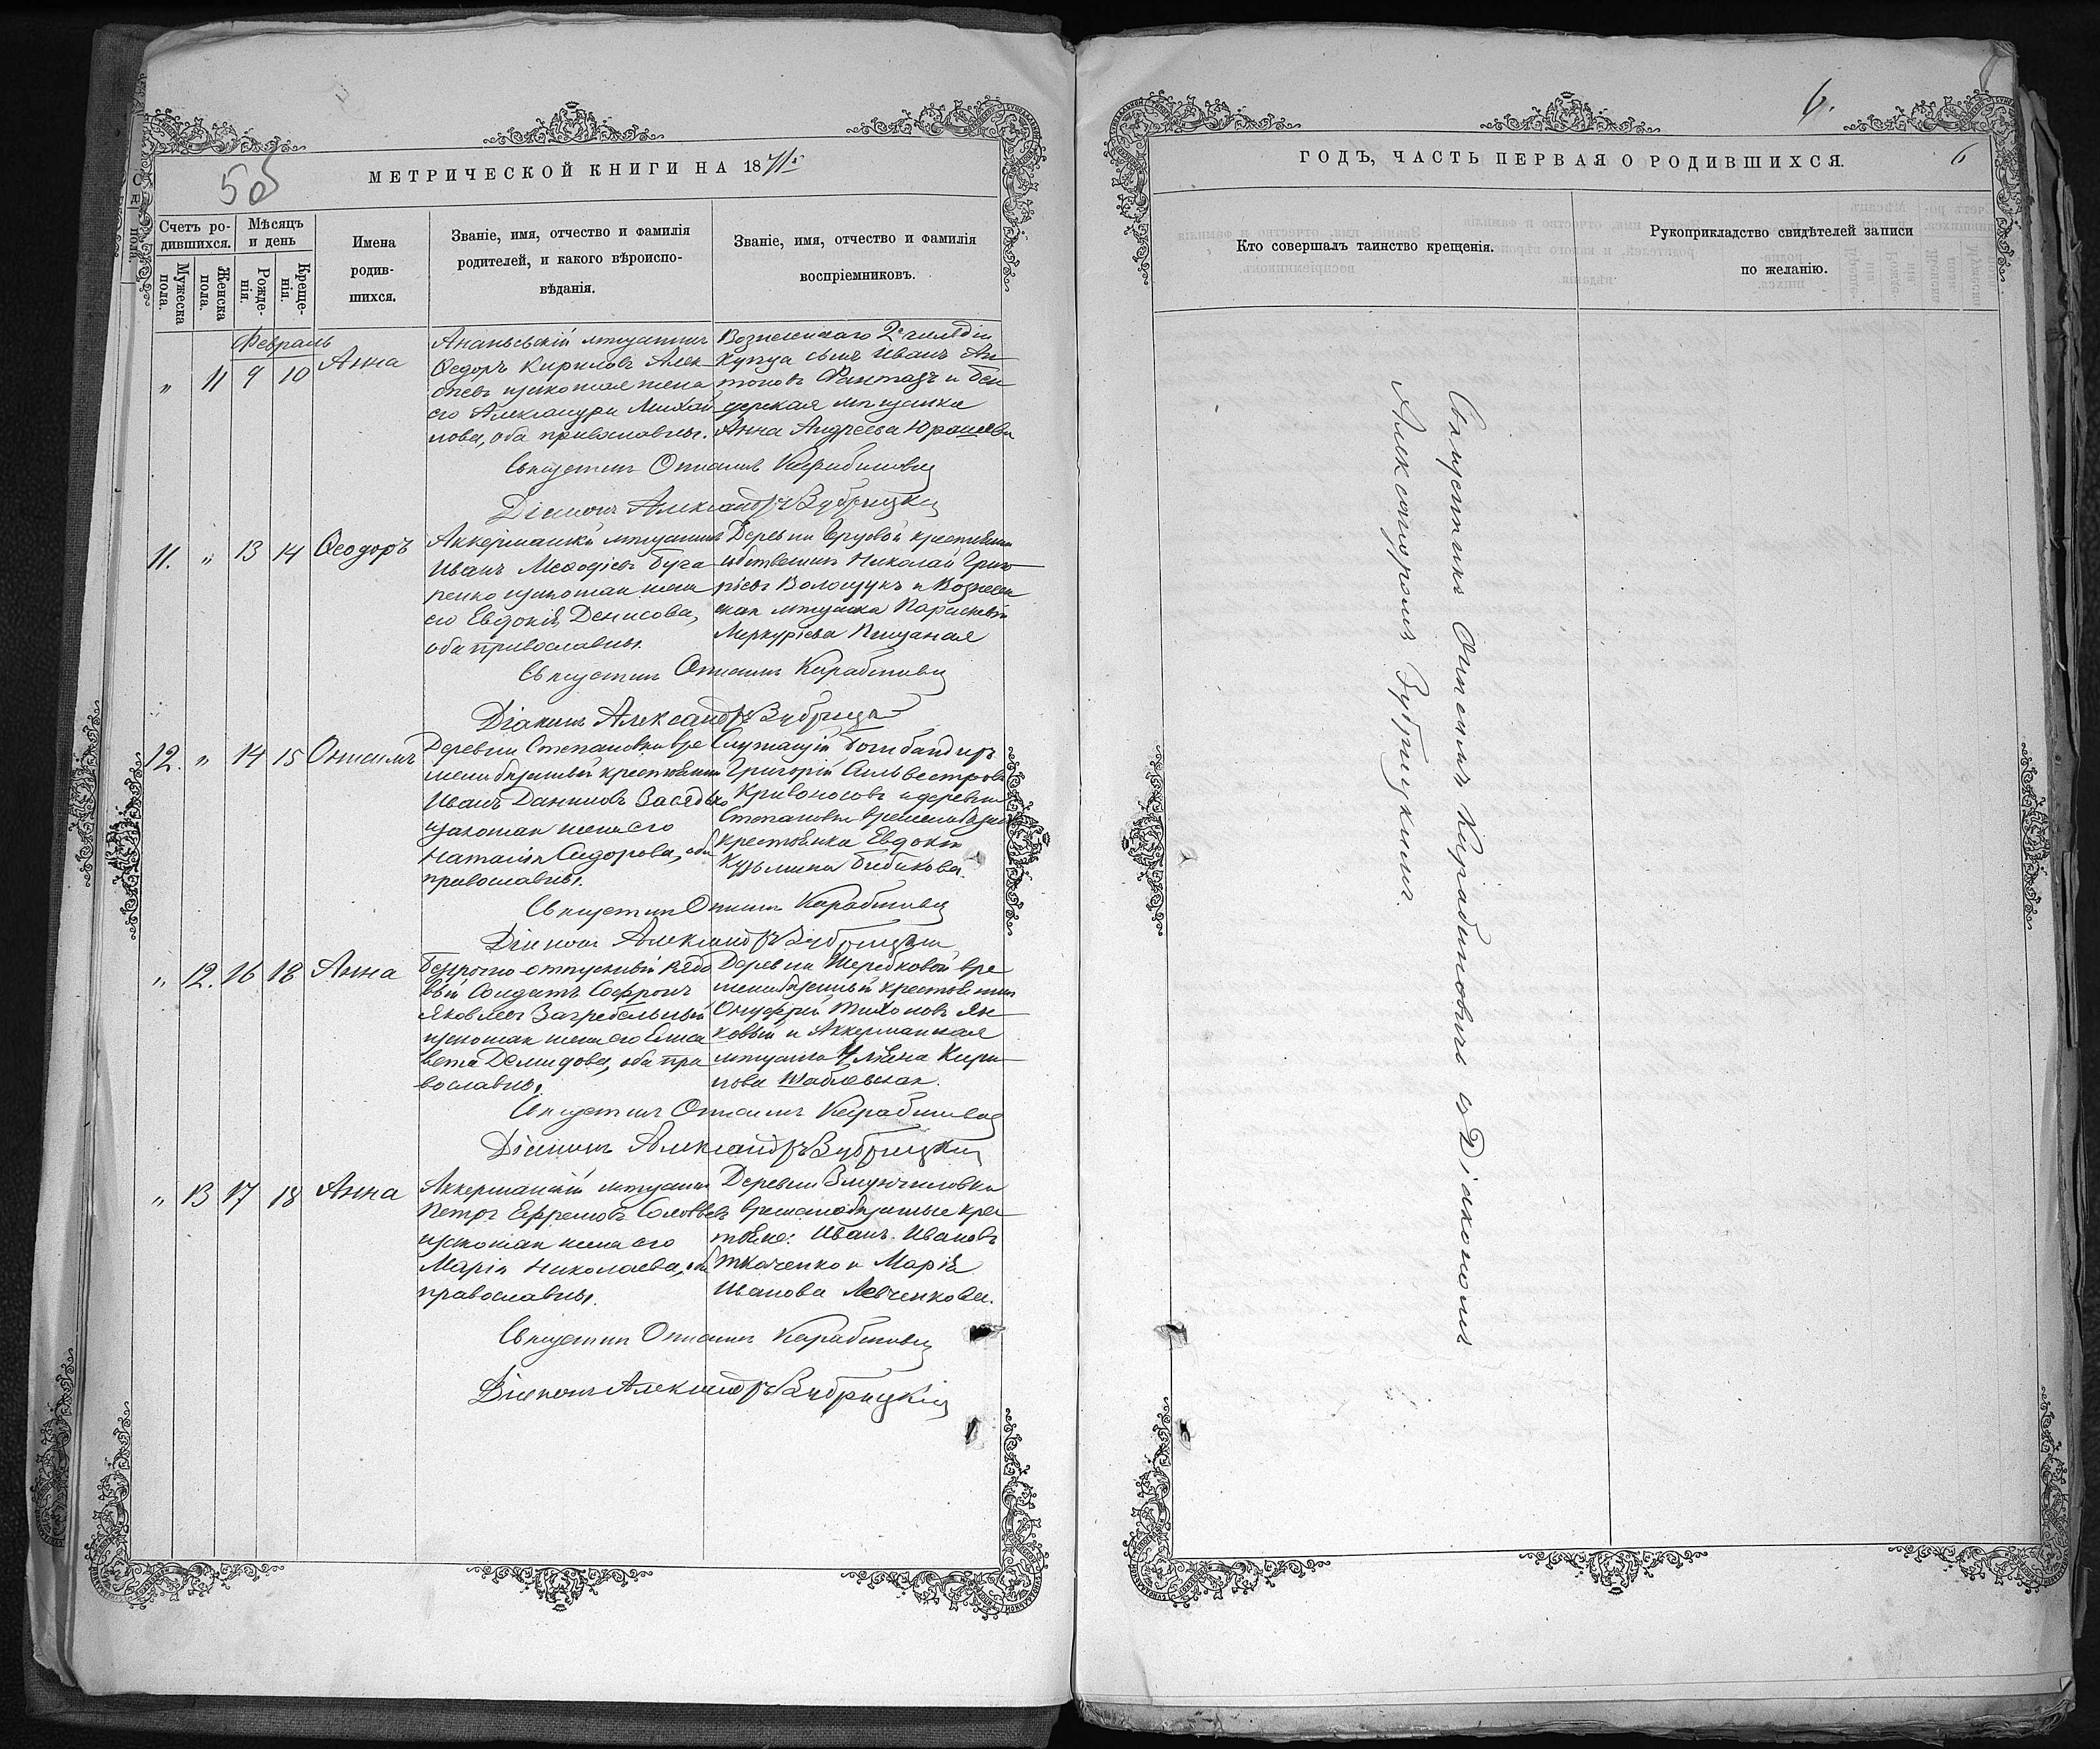 50
МЕТРИЧЕСКОЙ КНИГИ НА 1871
Счетъ ро-
дившихся.
Мужеска
пола.
Женска
пола.
Мѣсяцъ
и день
Рожде-
нія.
Креще-
нія.
Имена
родив-
шихся.
Званіе, имя, отчество и фамилія
родителей, и какого вѣроиспо-
вѣданія.
Званіе, имя, отчество и фамилія
воспріемниковъ.
Февраль
" 11 9 10 Анна
Ананьевскій мѣщанинъ
Ѳедоръ Кириловъ Алек-
сѣевъ и законная жена
его Александра Михай-
лова, оба православны.
Вознесенскаго 2й гильдіи
купца сынъ Иванъ Ан-
тоновъ и Бен-
дерская мѣщанка
Анна Андреева
Священникъ Онисимъ Карабиновичъ
Діаконъ Александръ Зубрицкій
11. " 13 14 Ѳеодоръ
Аккерманскій мѣщанинъ
Иванъ Меѳодіевъ Буга-
ренко и законная жена
его Евдокія Денисова,
оба православны.
Деревни крестьянинъ
собственникъ Николай Григо-
рьевъ Волощукъ и Вознесен-
ская мѣщанка Параскевія
Меркурьева Пищаная
Священникъ Онисимъ Карабиновичъ
Діаконъ Александръ Зубрицкій
12. " 14 15 Онисимъ
Деревни Степановки вре-
менно обязанный крестьянинъ
Иванъ Даниловъ Засядько
и законная жена его
Наталія Сидорова, оба
православны.
Служащій
Григорій Сильвестровъ
Кривоносовъ и деревни
Степановки временнообязан.
крестьянка Евдокія
Кузьмина Бибикова.
Священникъ Онисимъ Карабиновичъ
Діаконъ Александръ Зубрицкій
" 12. 16 18 Анна
Безсрочно-отпускный рядо-
вый солдатъ Софронъ
Яковлевъ Загребельный
и законная жена его Елиса-
вета Демидова, оба пра-
вославны.
Деревни Жеребковой вре-
менно обязанный крестьянинъ
Онуфрій Тихоновъ Ян-
ковый и Аккерманская
мѣщанка Ульяна Кири-
лова Шаблевская.
Священникъ Онисимъ Карабиновичъ
Діаконъ Александръ Зубрицкій
" 13 17 18 Анна
Аккерманскій мѣщанинъ
Петръ Ефремовъ Соловьевъ
и законная жена его
Марія Николаева, оба
православны.
Деревни
временнообязанные кре-
стьяне: Иванъ Ивановъ
Ткаченко и Марія
Иванова Левченкова.
Священникъ Онисимъ Карабиновичъ
Діаконъ Александръ Зубрицкій
6.
6
ГОДЪ, ЧАСТЬ ПЕРВАЯ О РОДИВШИХСЯ.
Кто совершалъ таинство крещенія.
Рукоприкладство свидѣтелей записи
по желанію.
Священникъ Онисимъ Карабиновичъ съ Діакономъ
Александромъ Зубрицкимъ.